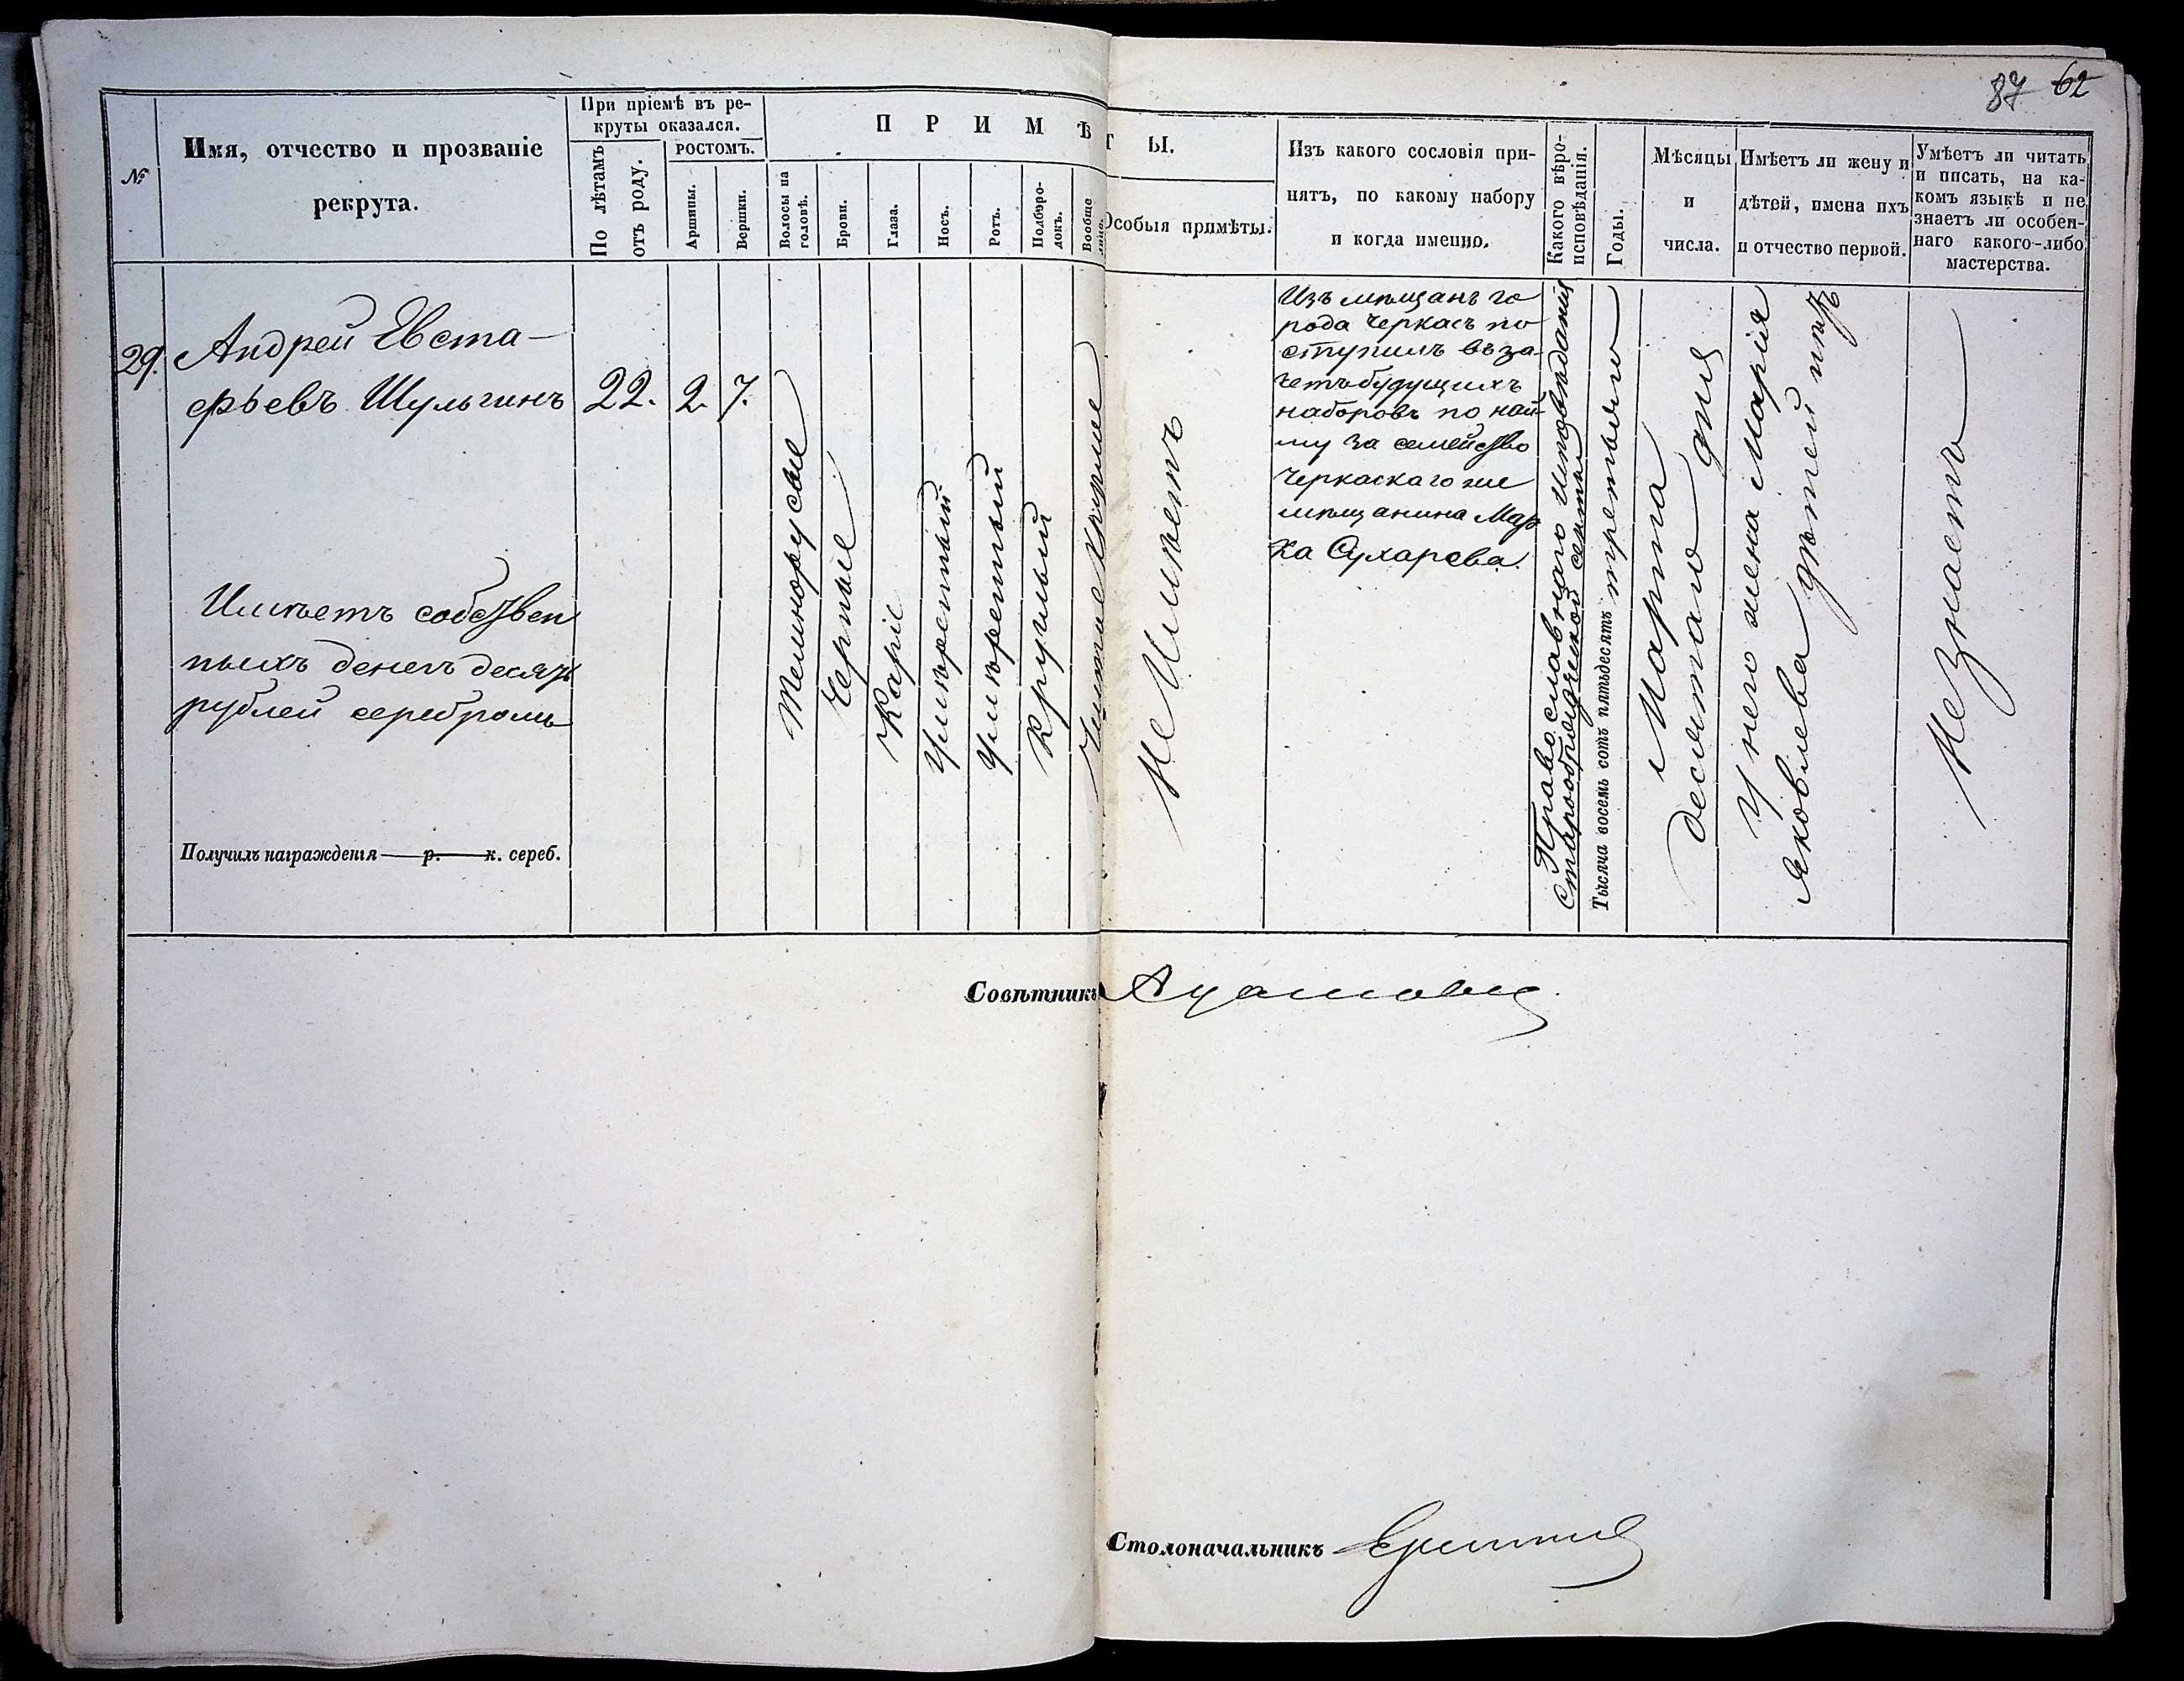 87 62
№
Имя, отчество и прозваніе
рекрута.
При пріемѣ въ ре-
круты оказался.
По лѣтамъ
отъ роду.
РОСТОМЪ.
Аршины.
Вершки.
П Р И М Ѣ Т Ы.
Волосы на
головѣ.
Брови.
Глаза.
Носъ.
Ротъ.
Подборо-
докъ.
Вообще
лицо.
Особыя примѣты.
Изъ какого сословія при-
нятъ, по какому набору
и когда именно.
Какого вѣро-
исповѣданія.
Годы.
Мѣсяцы
и
числа.
Имѣетъ ли жену и
дѣтей, имена ихъ
и отчество первой.
Умѣетъ ли читать
и писать, на ка-
комъ языкѣ и не
знаетъ ли особен-
наго какого-либо
мастерства.
29.
Андрей Евста-
фьевъ Шульгинъ
22.
2.
7.
Темнорусые
Черные
Каріе
Умѣренный
Умѣренный
Круглый
Чистое Круглое
Не Имѣетъ
Изъ мѣщанъ го
рода Черкасъ по
ступилъ въ за-
четъ будущихъ
наборовъ по най-
му за семейство
Черкаскаго же
мѣщанина Мар
ка Сухарева.
Православнаго Исповѣданія
Старообрядческой секты
Тысяча восемь сотъ пятьдесятъ третьяго
Марта
десятаго дня
У него жена Марія
Яковлева дѣтей нѣтъ
Не Знаетъ
Имѣетъ собствен
ныхъ денегъ десять
рублей серебромъ
Получилъ награжденія — р. — к. сереб.
Совѣтникъ
Столоначальникъ